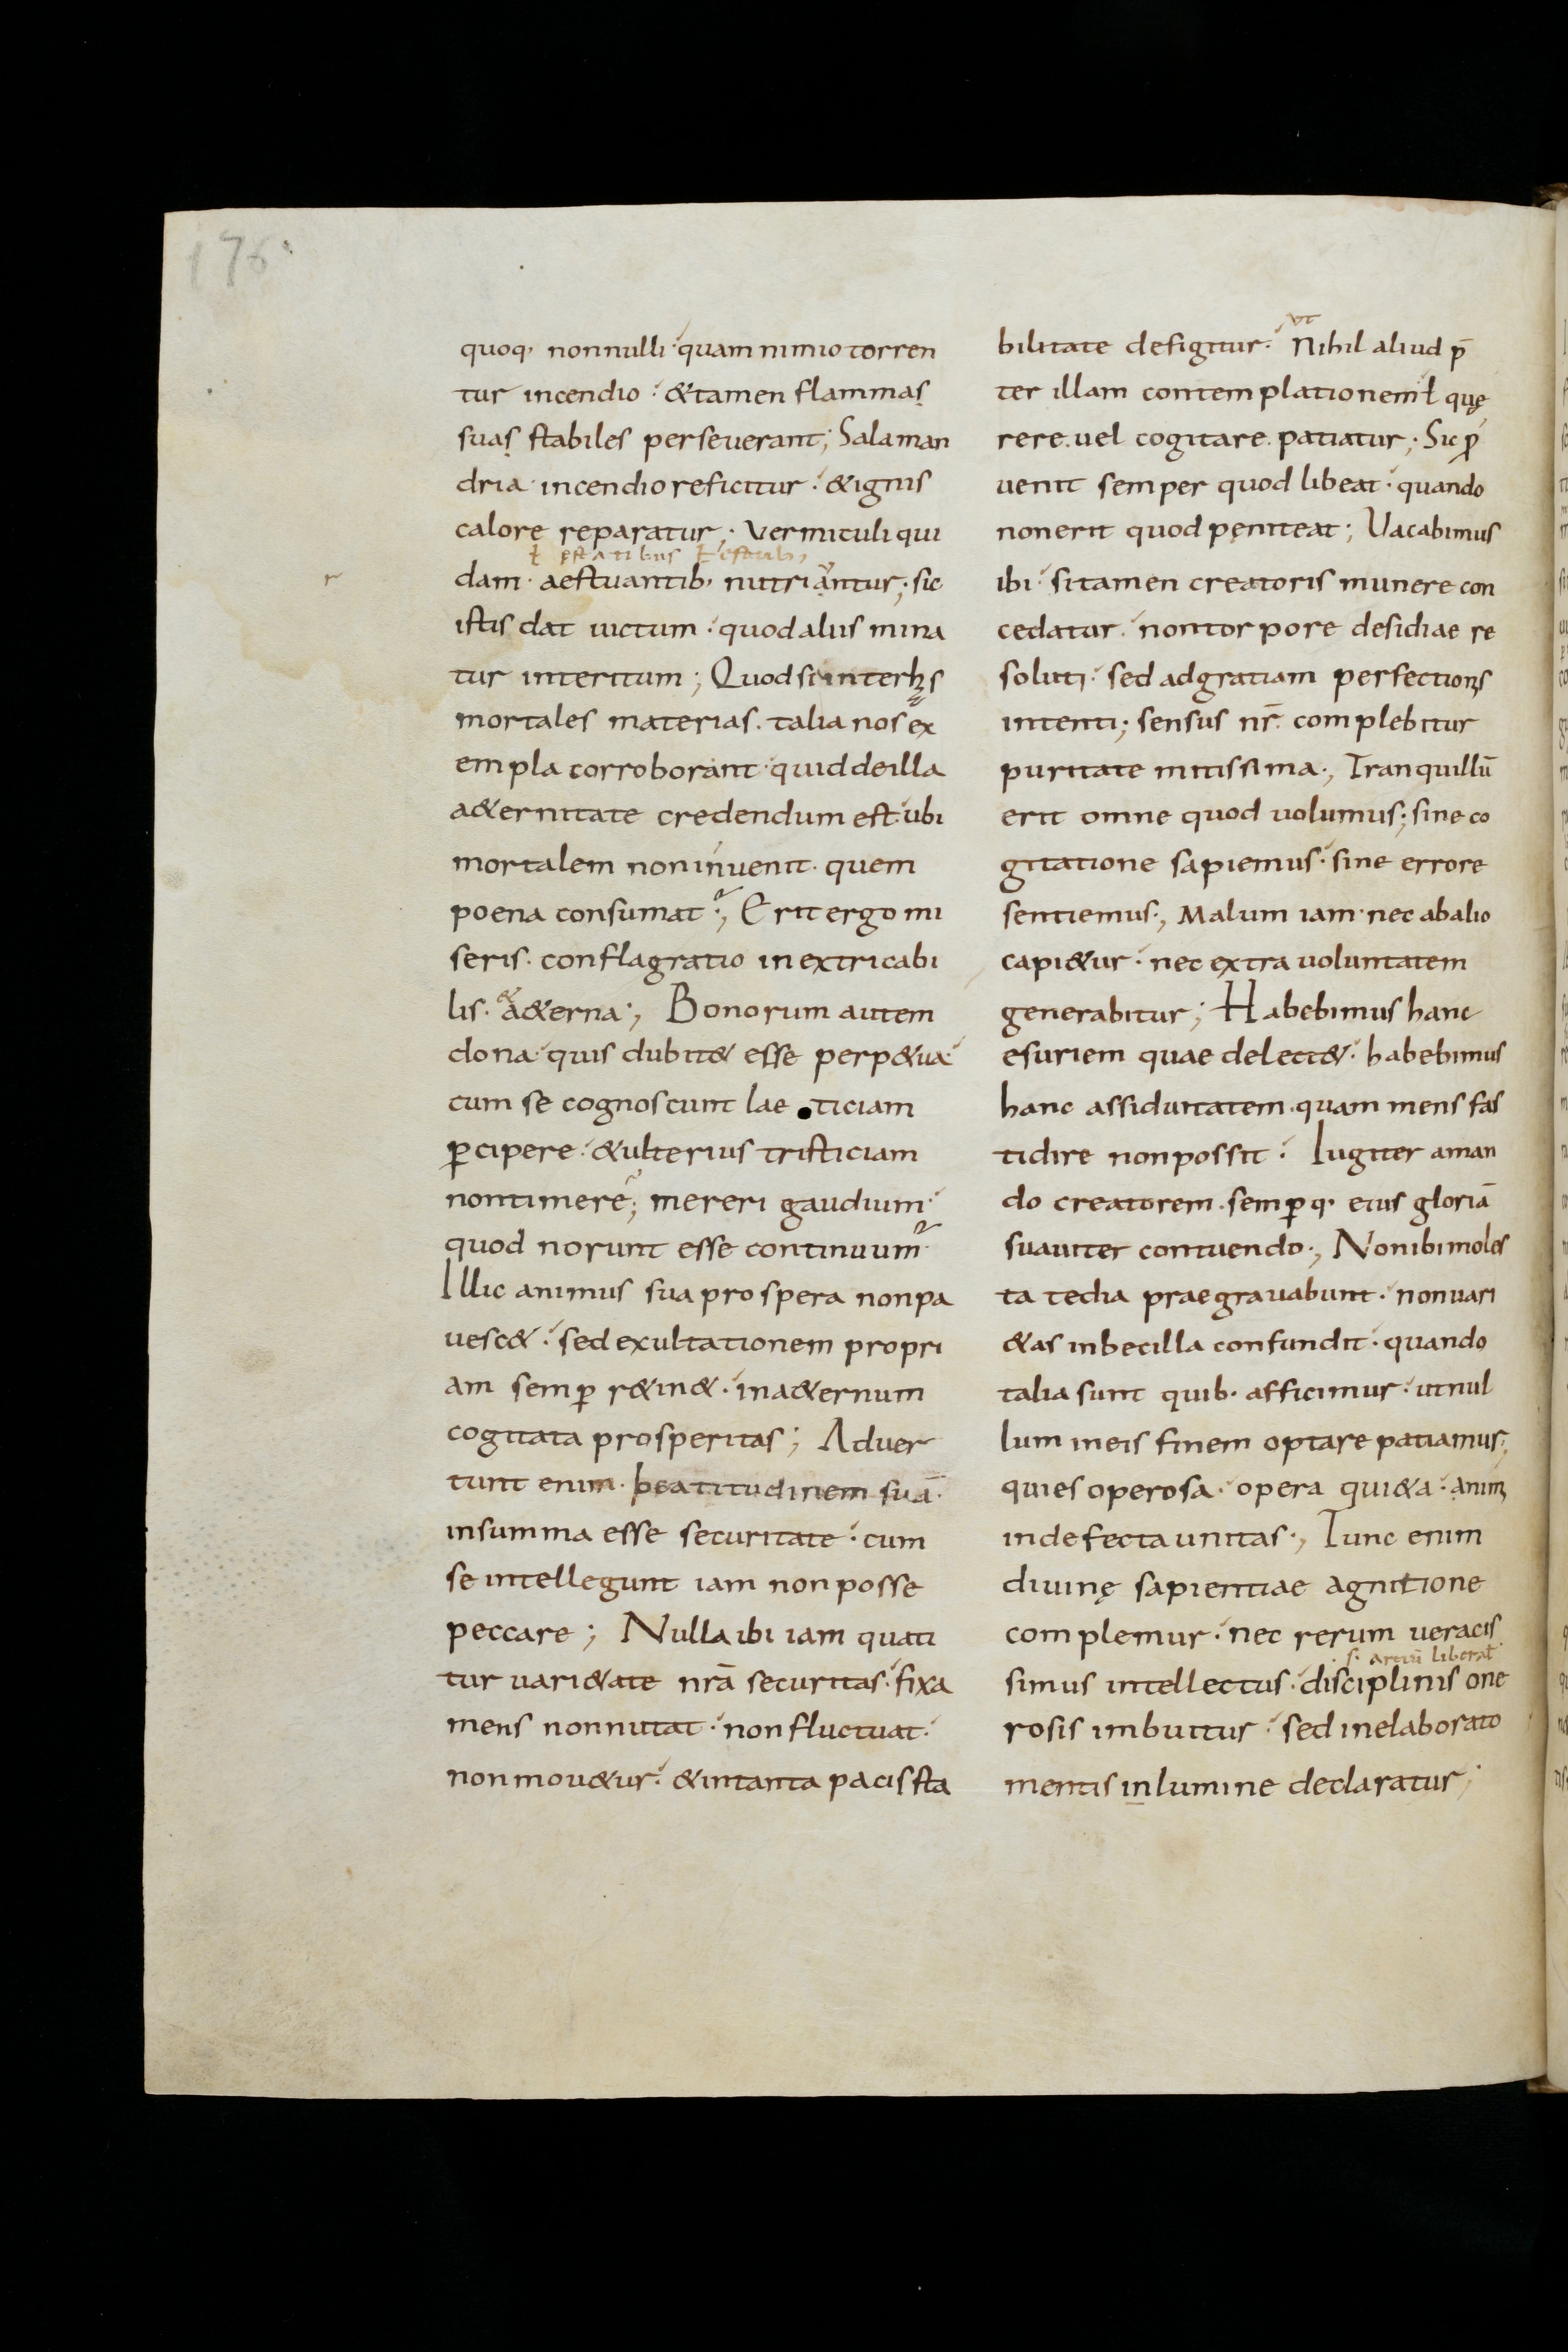 176
quoq· nonnulli· quam nimio torren
tur incendio· &tamen flammas
suas stabiles perseuerant; Salaman
dria· incendio reficitur· &ignis
calore reparatur; Vermiculi qui
ł estatibus ł estatib;
r
dam· aestuantib; nutriantur; sic
istis dat uictum· quod aliis mina
tur interitum; Quod si inter has
mortales materias· talia nos ex
empla corroborant· quid de illa
a&ernitate credendum est· ubi
mortalem non inuenit· quem
poena consumat; Erit ergo mi
seris· conflagratio inextricabi
lis· & a&erna; Bonorum autem
dona· quis dubit& esse perp&ua·
cum se cognoscunt lae ticiam
ꝑcipere· &ulterius tristiciam
non timere; mereri gaudium·
quod norunt esse continuum·
Illic animus sua prospera non pa
uesc&· sed exultationem propri
am semꝑ r&in&· in a&ernum
cogitata prosperitas; Aduer
tunt enim· beatitudinem suā·
in summa esse securitate· cum
se intellegunt iam non posse
peccare; Nulla ibi iam quati
tur uari&ate nrā securitas· fixa
mens non nutat· non fluctuat·
non mou&ur· &in tanta pacis sta
ut
bilitate defigitur· Nihil aliud p̄
ter illam contemplationem ł quę
rere· uel cogitare· patiatur; Sic ꝓ
uenit semper quod libeat· quando
non erit quod pęniteat; Uacabimus
ibi· si tamen creatoris munere con
cedatur· non torpore desidiae re
soluti· sed ad gratiam perfectionis
intenti; sensus nr̄ complebitur
puritate mitissima; Tranquillū
erit omne quod uolumus; sine co
gitatione sapiemus· sine errore
sentiemus; Malum iam· nec ab alio
capi&ur· nec extra uoluntatem
generabitur; Habebimus hanc
esuriem quae delect&· habebimus
hanc assiduitatem· quam mens fas
tidire non possit· Iugiter aman
do creatorem· semꝑq· eius gloriā
suauiter contuendo; Non ibi moles
ta tedia praegrauabunt· non uari
&as inbecilla confundit· quando
talia sunt quib· afficimur· ut nul
lum in eis finem optare patiamus;
quies operosa· opera qui&a· animi
indefecta unitas; Tunc enim
diuinę sapientiae agnitione
complemur· nec rerum ueracis
s· artiū liberal
simus intellectus· disciplinis one
rosis imbuitur· sed inelaborato
mentis in lumine declaratur;